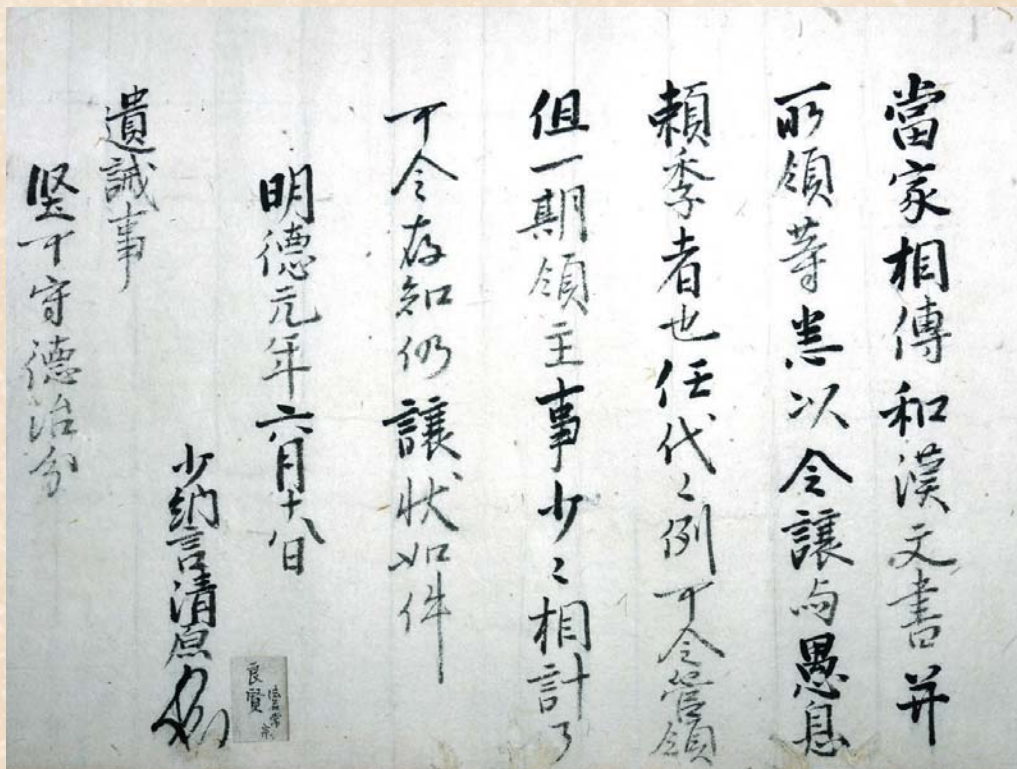 當家相傳和漢文書并
所領等悉以令讓与愚息
頼季者也任代々例可令管領
但一期領主事少々相計了
可令存知仍讓状如件
明德元年六月十八日
少納言清原
良賢
遺誡事
堅可守德治分